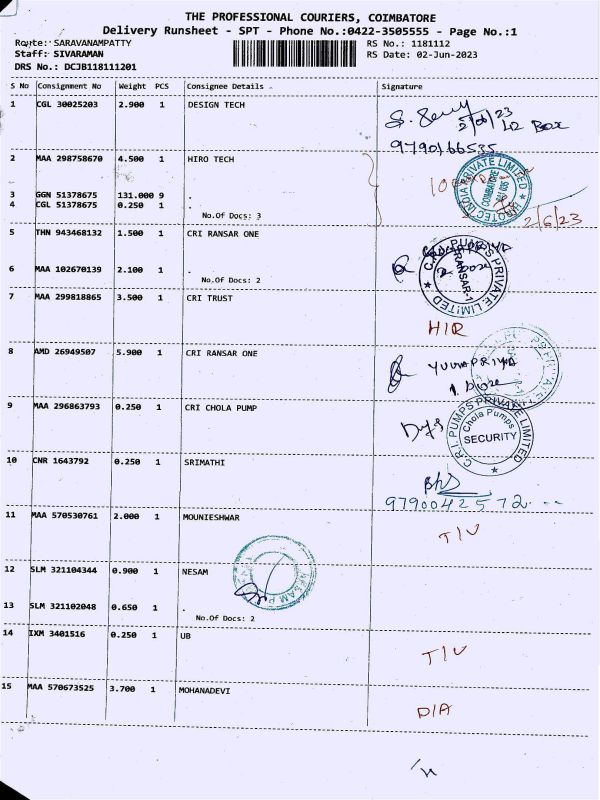 THE PROFESSIONAL COURIERS, COIMBATORE
Delivery Runsheet - SPT - Phone No.:0422-3505555 - Page No.:1
Route: SARAVANAMPATTY RS No.: 1181112
Staff: SIVARAMAN RS Date: 02-Jun-2023
DRS No.: DCJB118111201
S No Consignment No Weight PCS Consignee Details Signature
1 CGL 30025203 2.900 1 DESIGN TECH
2/06/23 Box
9790166535
2 MAA 298758670 4.500 1 HIRO TECH
3 GGN 51378675 131.000 9 .
4 CGL 51378675 0.250 1 .
No.Of Docs: 3
HIROTEC INDIA PRIVATE LIMITED
COIMBATORE
2/6/23
5 THN 943468132 1.500 1 CRI RANSAR ONE
6 MAA 102670139 2.100 1 .
No.Of Docs: 2
C.R.I. PUMPS PRIVATE LIMITED
RANSAR-1
2 Box
7 MAA 299818865 3.500 1 CRI TRUST
H/R
8 AMD 26949507 5.900 1 CRI RANSAR ONE
YUVAPRIYA
1 Box
9 MAA 296863793 0.250 1 CRI CHOLA PUMP
C.R.I. PUMPS PRIVATE LIMITED
Chola Pumps
SECURITY
10 CNR 1643792 0.250 1 SRIMATHI
9790042572
11 MAA 570530761 2.000 1 MOUNIESHWAR
T/V
12 SLM 321104344 0.900 1 NESAM
13 SLM 321102048 0.650 1 .
No.Of Docs: 2
14 IXM 3401516 0.250 1 UB
T/V
15 MAA 570673525 3.700 1 MOHANADEVI
D/A